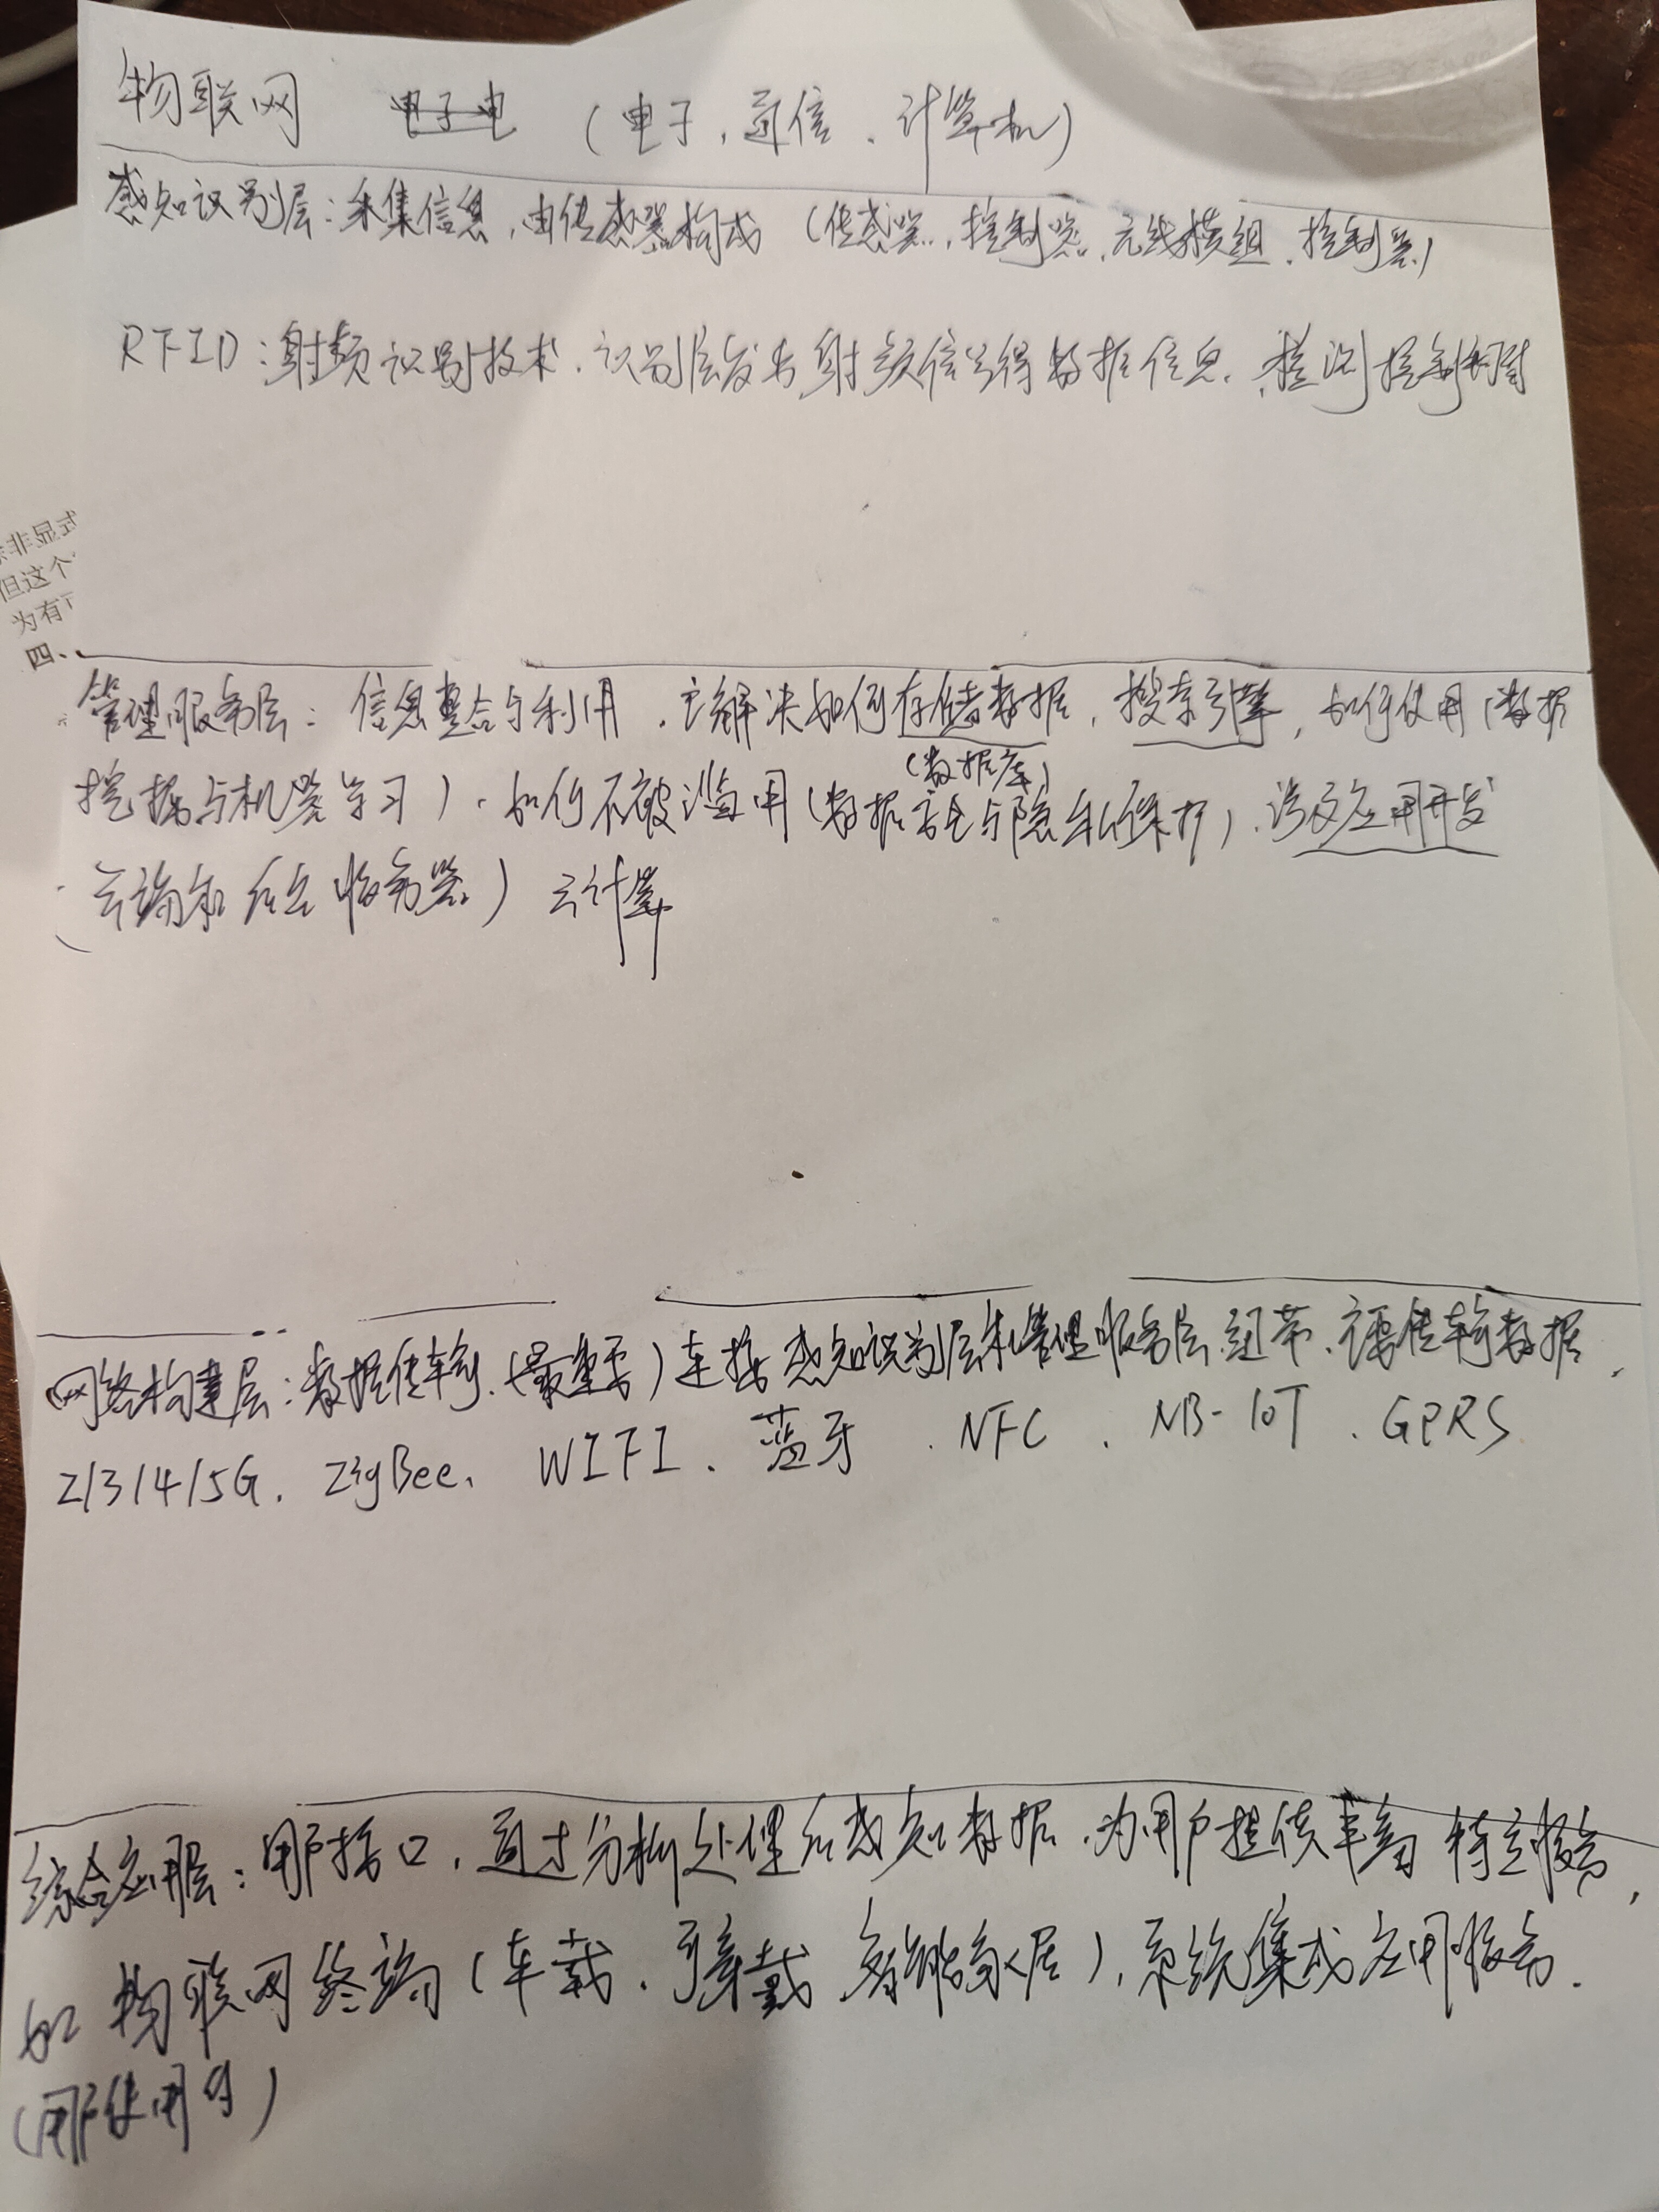 物联网 电子电 (电子,通信、计算机)
感知识别层:采集信息,由传感器构成 (传感器,控制器、无线模组、控制器)
RFID:射频识别技术、识别层发出射频信号得数据信息、检测控制
非显式
但这个
为有
四、
管理服务层:信息整合与利用,主解决如何存储数据,搜索引擎,如何使用(数据
(数据库)
挖掘与机器学习)、如何不被滥用(数据安全与隐私保护)、涉及应用开发
(云端和后台服务器)云计算
网络构建层:数据传输、(最重要)连接感知识别层和管理服务层、纽带、主要传输数据,
2/3/4/5G、ZigBee、WIFI、蓝牙、NFC、NB-IoT、GPRS
综合应用层:用户接口,通过分析处理后感知数据,为用户提供丰富特定服务,
如物联网终端(车载、可穿戴 智能家居)、系统集成应用服务.
(用户使用的)